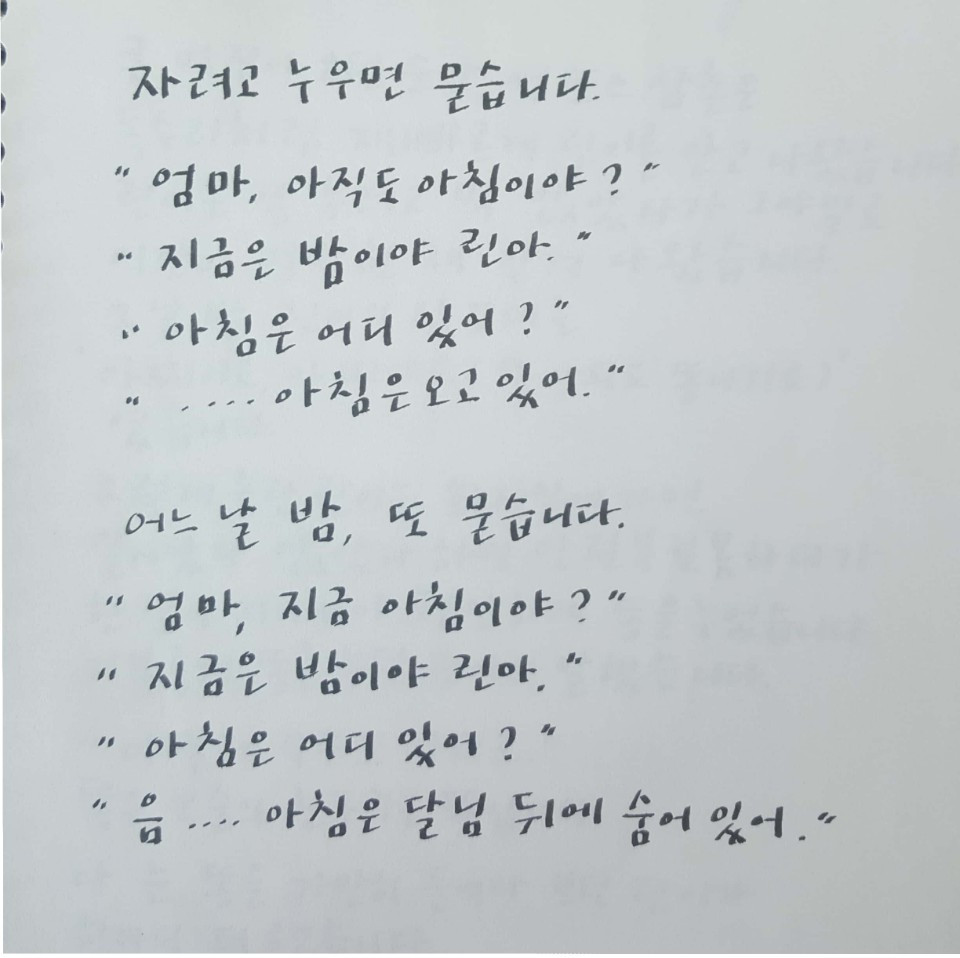 자려고 누우면 묻습니다.
"엄마, 아직도 아침이야?"
"지금은 밤이야 린아."
"아침은 어디 있어?"
".... 아침은 오고 있어."
어느 날 밤, 또 묻습니다.
"엄마, 지금 아침이야?"
"지금은 밤이야 린아."
"아침은 어디 있어?"
"음.... 아침은 달님 뒤에 숨어 있어."